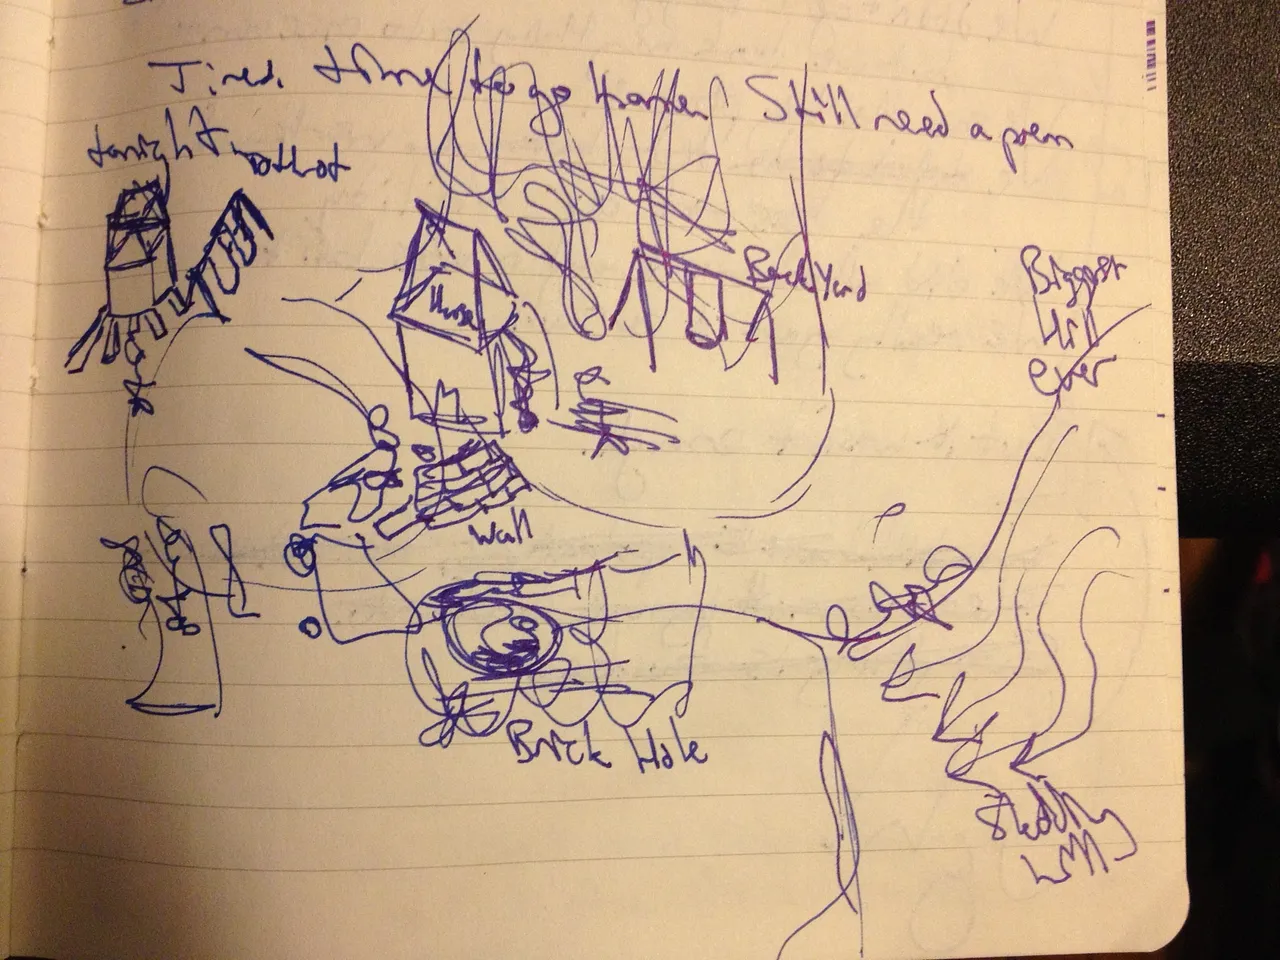 Tired. time to go home. Still need a poem
tonight
House
Back Yard
Biggest
Hill
Ever
Wall
Brick Hole
Sledding
Hill